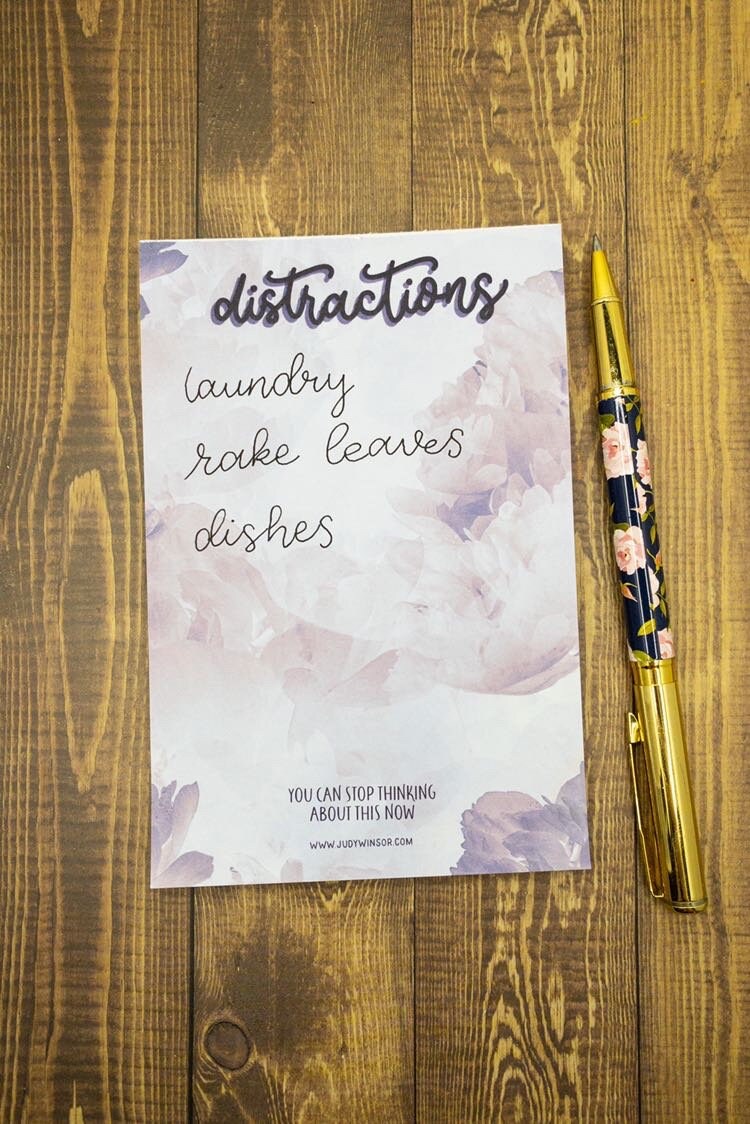 distractions
laundry
rake leaves
dishes
YOU CAN STOP THINKING
ABOUT THIS NOW
WWW.JUDYWINSOR.COM